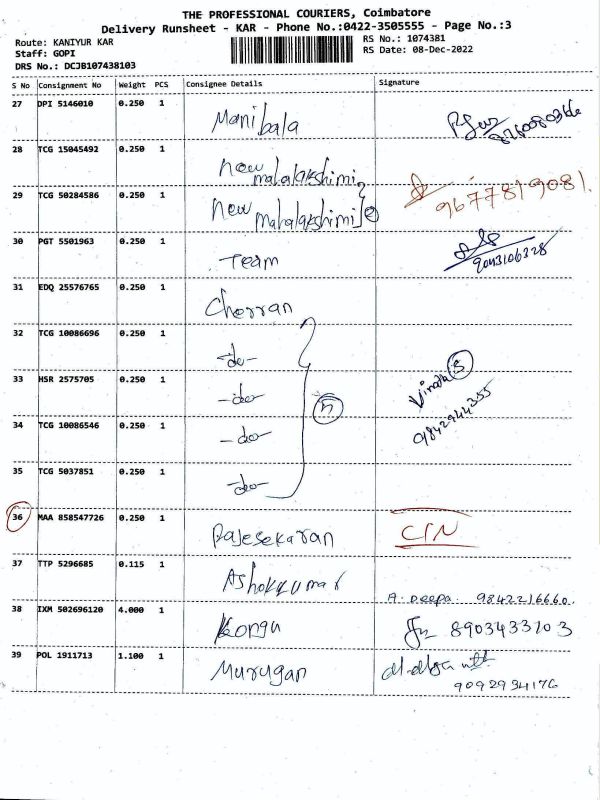 THE PROFESSIONAL COURIERS, Coimbatore
Delivery Runsheet - KAR - Phone No.:0422-3505555 - Page No.:3
Route: KANIYUR KAR RS No.: 1074381
Staff: GOPI RS Date: 08-Dec-2022
DRS No.: DCJB107438103
S No Consignment No Weight PCS Consignee Details Signature
27 DPI 5146010 0.250 1 Manibala
28 TCG 15045492 0.250 1 New mahalakshimi
29 TCG 50284586 0.250 1 New mahalakshimi 2 9677819081.
30 PGT 5501963 0.250 1 Team 9043106328
31 EDQ 25576765 0.250 1 Cherran
32 TCG 10086696 0.250 1 -do-
33 HSR 2575705 0.250 1 -do- 5
34 TCG 10086546 0.250 1 -do- 9842944355
35 TCG 5037851 0.250 1 -do-
36 MAA 858547726 0.250 1 Rajesekaran CIN
37 TTP 5296685 0.115 1 Ashokkumar A. Deepa 9842216660.
38 IXM 502696120 4.000 1 Kongu 8903433703
39 POL 1911713 1.100 1 Murugan
9092934176